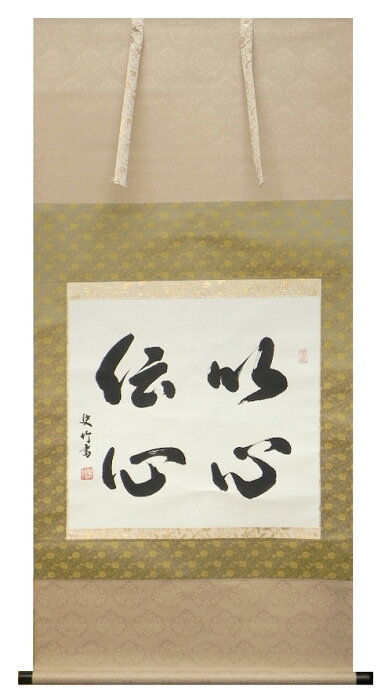 以心
伝心
史竹書